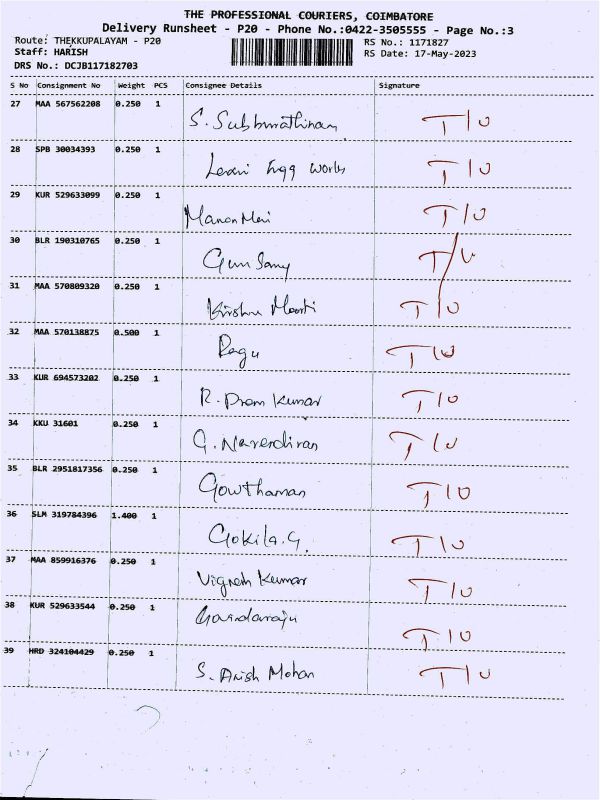 THE PROFESSIONAL COURIERS, COIMBATORE
Delivery Runsheet - P20 - Phone No.:0422-3505555 - Page No.:3
Route: THEKKUPALAYAM - P20 RS No.: 1171827
Staff: HARISH RS Date: 17-May-2023
DRS No.: DCJB117182703
S No Consignment No Weight PCS Consignee Details Signature
27 MAA 567562208 0.250 1 S. Subburathinam T/O
28 SPB 30034393 0.250 1 Engg Works T/O
29 KUR 529633099 0.250 1 T/O
30 BLR 190310765 0.250 1 T/O
31 MAA 570809320 0.250 1 T/O
32 MAA 570138875 0.500 1 Ragu T/O
33 KUR 694573202 0.250 1 R. Prem Kumar T/O
34 KKU 31601 0.250 1 G. Narendiran T/O
35 BLR 2951817356 0.250 1 Gowthaman T/O
36 SLM 319784396 1.400 1 Gokila.G. T/O
37 MAA 859916376 0.250 1 Vignesh Kumar T/O
38 KUR 529633544 0.250 1 T/O
39 HRD 324104429 0.250 1 S. Arish Mohan T/O